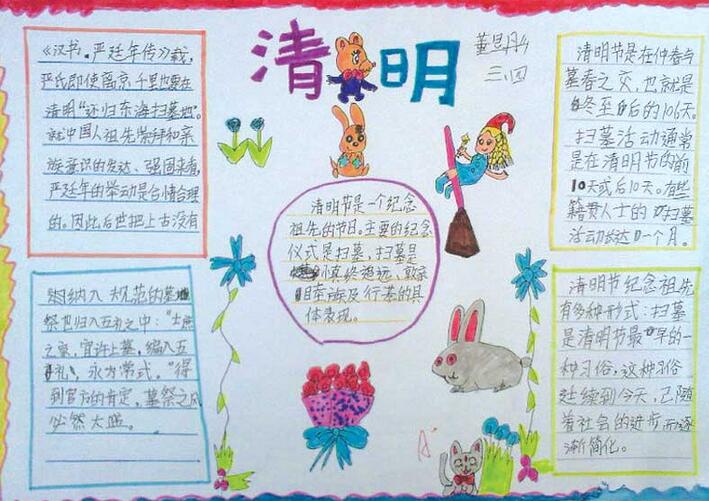 清明
三、四
《汉书。严延年传》载，
严氏即使离京千里也要在
清明“还归东海扫墓地”。
就中国人祖先崇拜和亲
族意识的发达、强固来看，
严延年的举动是合情合理
的。因此后世把上古没有
纳入规范的墓
祭也归入五礼之中：“士庶
之家，宜许上墓，编入五
礼，永为常式。”得
到官方的肯定，墓祭之风
必然大盛。
清明节是一个纪念
祖先的节日。主要的纪念
仪式是扫墓，扫墓是
慎终追远、敦亲
睦族及行孝的具
体表现。
清明节是在仲春与
暮春之交，也就是
冬至后的106天。
扫墓活动通常
是在清明节的前
10天或后10天。有些
籍贯人士的扫墓
活动长达一个月。
清明节纪念祖先
有多种形式：扫墓
是清明节最早的一
种习俗，这种习俗
延续到今天，已随
着社会的进步而逐
渐简化。
A